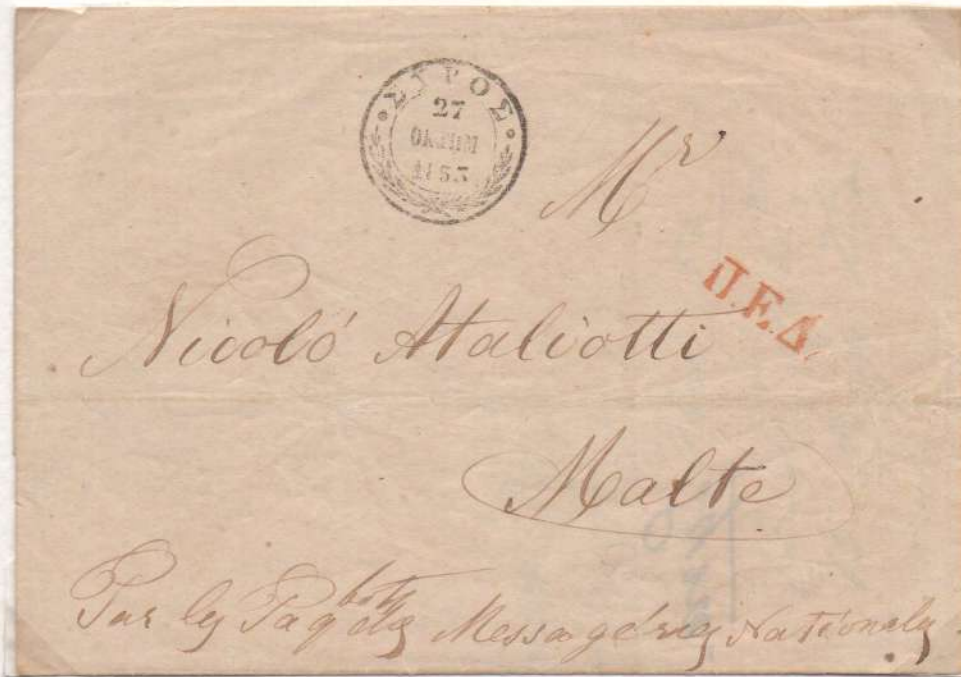 ΣΥΡΟΣ
27
ΟΚΤΩΜ
1853
Mr
Π.Ε.Δ.
Nicoló Ataliotti
Malte
Par les Paqbots des Messagéries Nationales